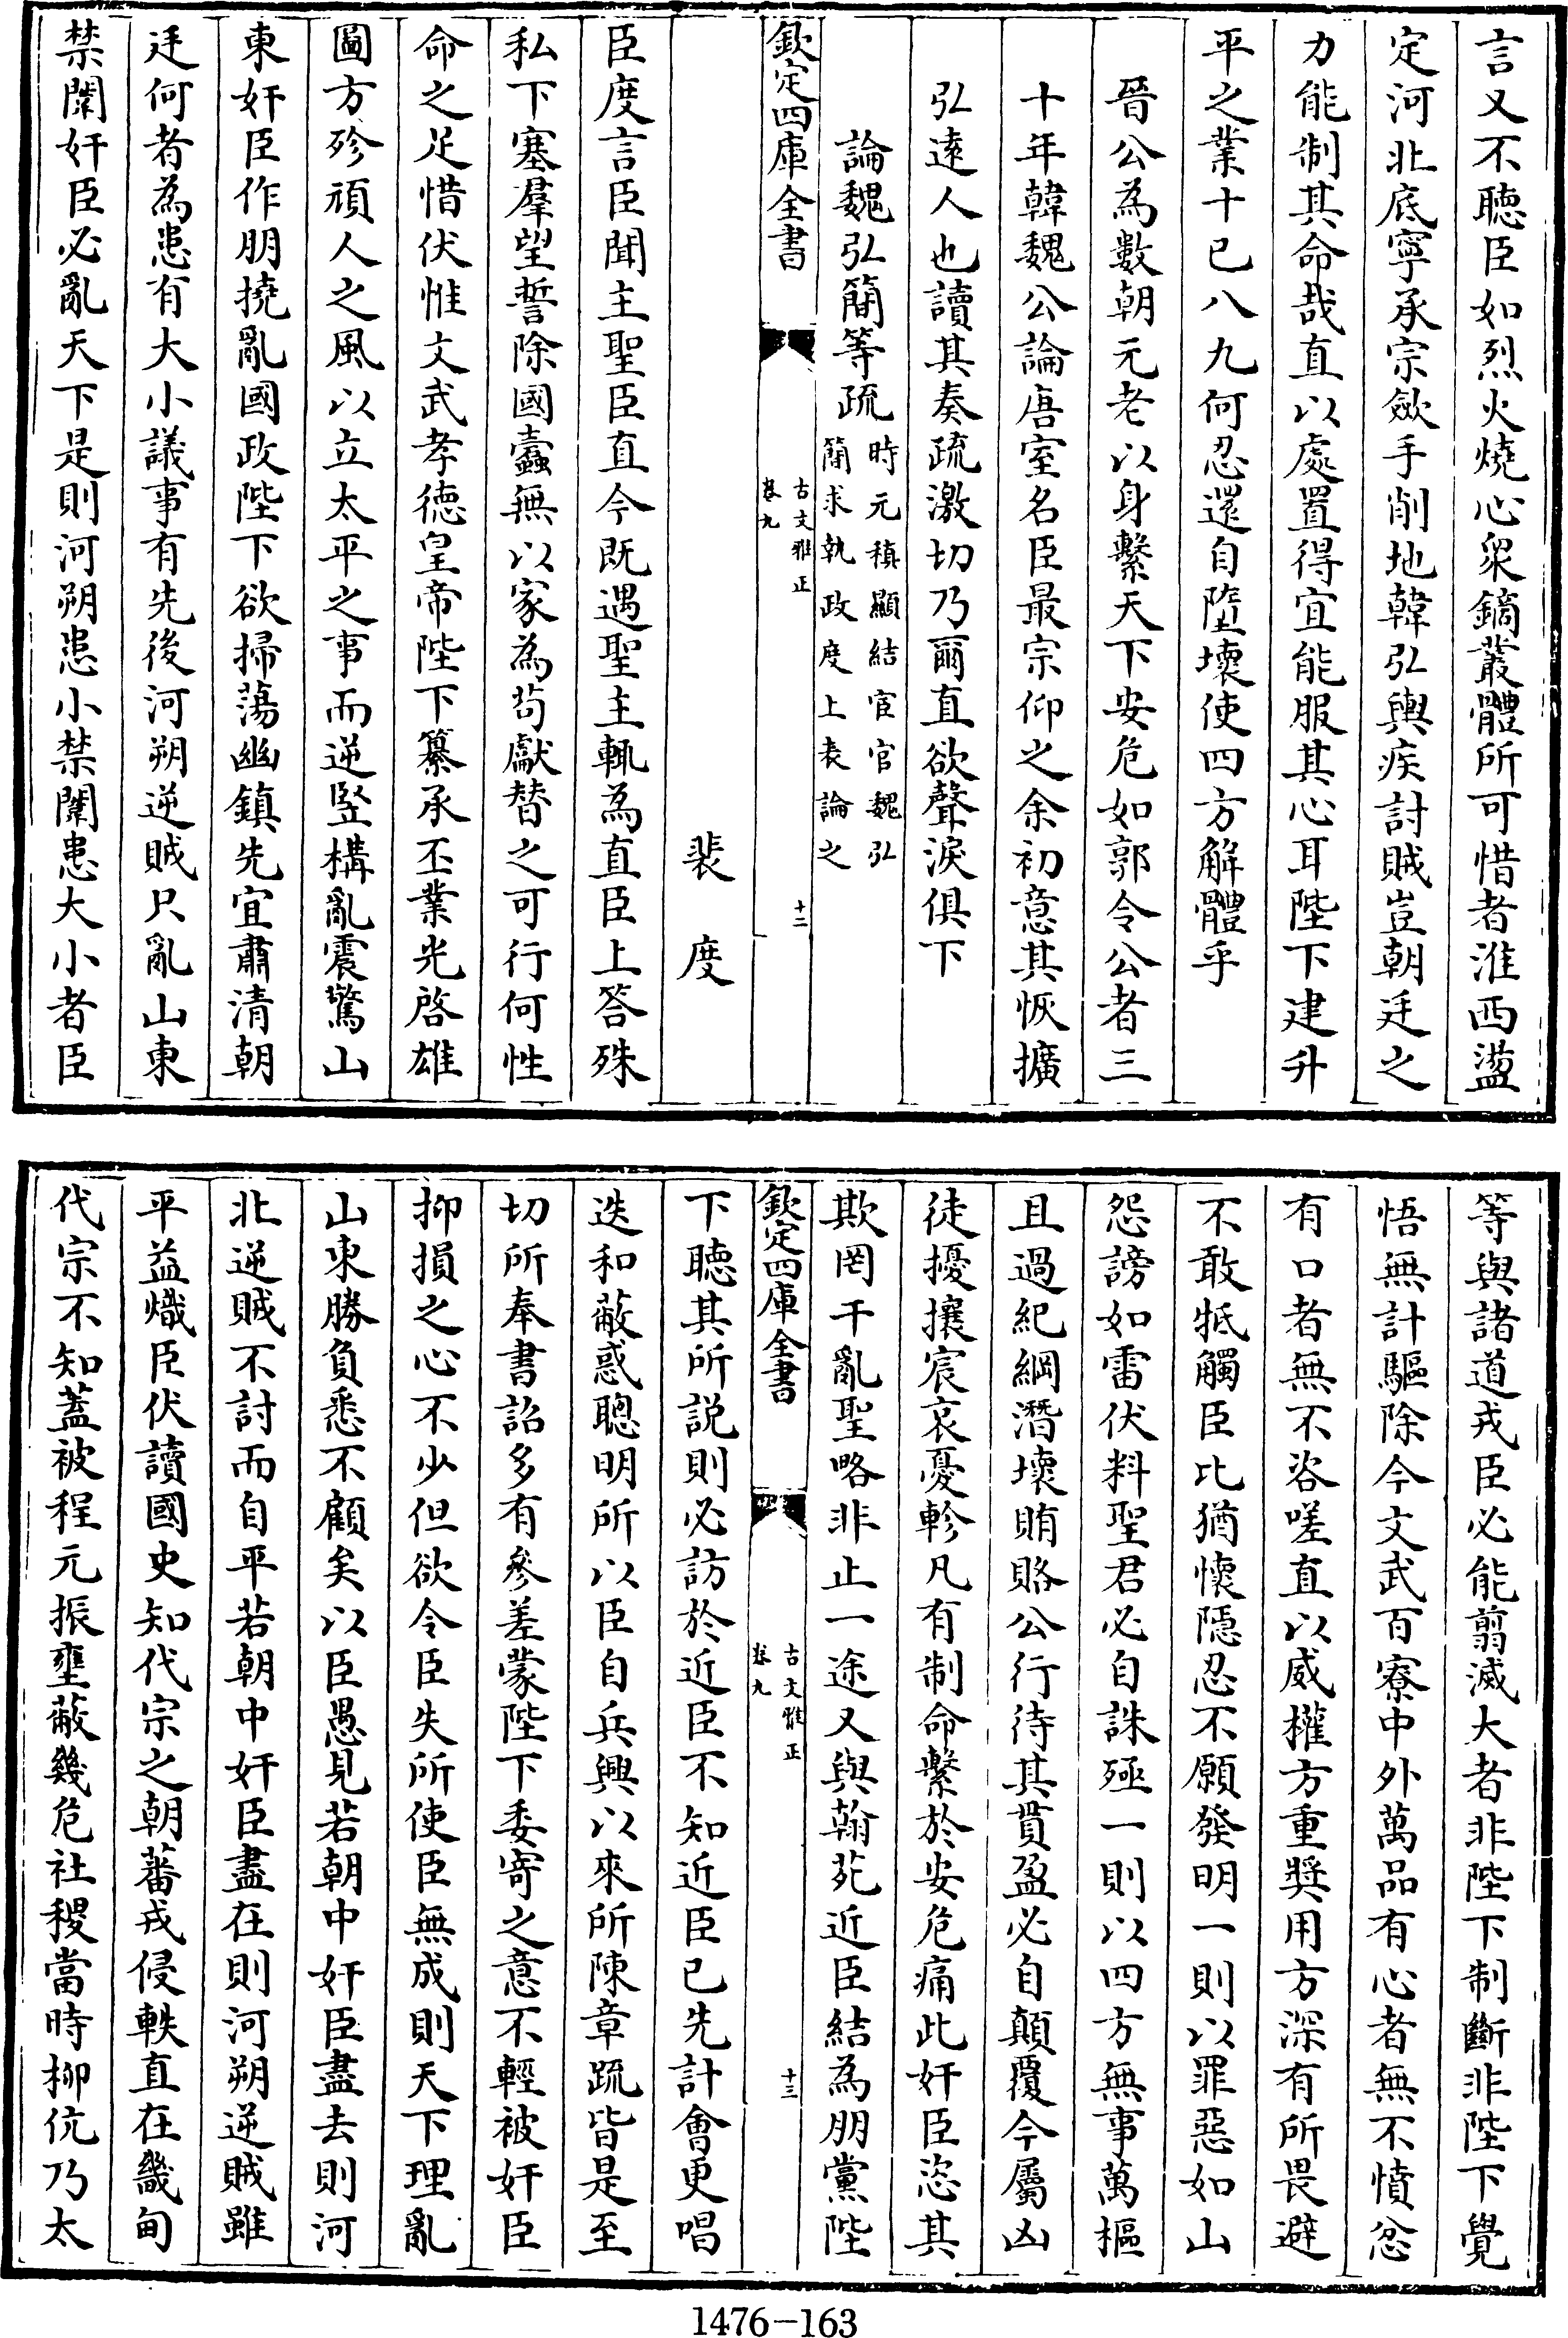 言又不聽臣如烈火燒心眾鏑叢體所可惜者淮西盪
定河北底寧承宗斂手削地韓弘輿疾討賊豈朝廷之
力能制其命哉直以處置得宜能服其心耳陛下建升
平之業十已八九何忍還自墮壞使四方解體乎
晉公為數朝元老以身繫天下安危如郭令公者三
十年韓魏公論唐室名臣最宗仰之余初意其恢擴
弘遠人也讀其奏疏激切乃爾直欲聲淚俱下
論魏弘簡等疏時元稹顯結宦官魏弘
簡求執政度上表論之
欽定四庫全書
古文雅正
卷九
十二
裴度
臣度言臣聞主聖臣直今既遇聖主輒為直臣上答殊
私下塞羣望誓除國蠹無以家為茍獻替之可行何性
命之足惜伏惟文武孝德皇帝陛下纂承丕業光啓雄
圖方殄頑人之風以立太平之事而逆豎搆亂震驚山
東奸臣作朋撓亂國政陛下欲掃蕩幽鎮先宜肅清朝
廷何者為患有大小議事有先後河朔逆賊只亂山東
禁闈奸臣必亂天下是則河朔患小禁闈患大小者臣
等與諸道戎臣必能翦滅大者非陛下制斷非陛下覺
悟無計驅除今文武百寮中外萬品有心者無不憤忿
有口者無不咨嗟直以威權方重奬用方深有所畏避
不敢牴觸臣比猶懷隱忍不願發明一則以罪惡如山
怨謗如雷伏料聖君必自誅殛一則以四方無事萬樞
且過紀綱潛壞賄賂公行待其貫盈必自顛覆今屬凶
徒擾攘宸衷憂軫凡有制命繫於安危痛此奸臣恣其
欺罔干亂聖略非止一途又與翰苑近臣結為朋黨陛
欽定四庫全書
古文雅正
卷九
十三
下聽其所說則必訪於近臣不知近臣已先計會更唱
迭和蔽惑聰明所以臣自兵興以來所陳章疏皆是至
切所奉書詔多有參差蒙陛下委寄之意不輕被奸臣
抑損之心不少但欲令臣失所使臣無成則天下理亂
山東勝負悉不顧矣以臣愚見若朝中奸臣盡去則河
北逆賊不討而自平若朝中奸臣盡在則河朔逆賊雖
平益熾臣伏讀國史知代宗之朝蕃戎侵軼直在畿甸
代宗不知蓋被程元振壅蔽幾危社稷當時柳伉乃太
1476-163